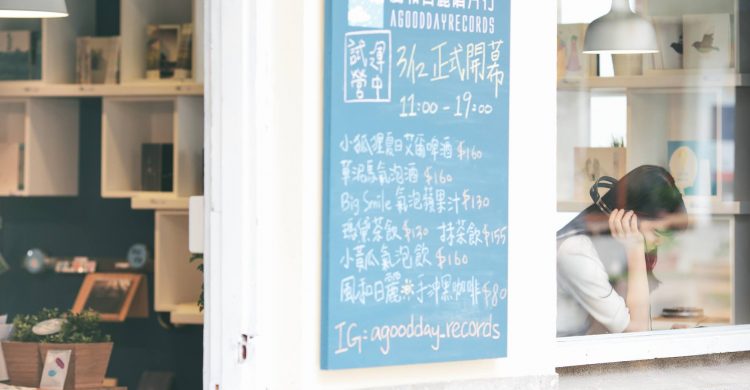 風和日麗唱片行
AGOODDAYRECORDS
試運
營中
3/12 正式開幕
11:00 - 19:00
小狐狸夏日艾爾啤酒 $160
華泥馬氣泡酒 $160
Big Smile 氣泡蘋果汁 $130
瑪黛茶飲 $130 抹茶飲 $155
小黃瓜氣泡飲 $160
風和日麗 手沖黑咖啡 $80
IG: agoodday.records